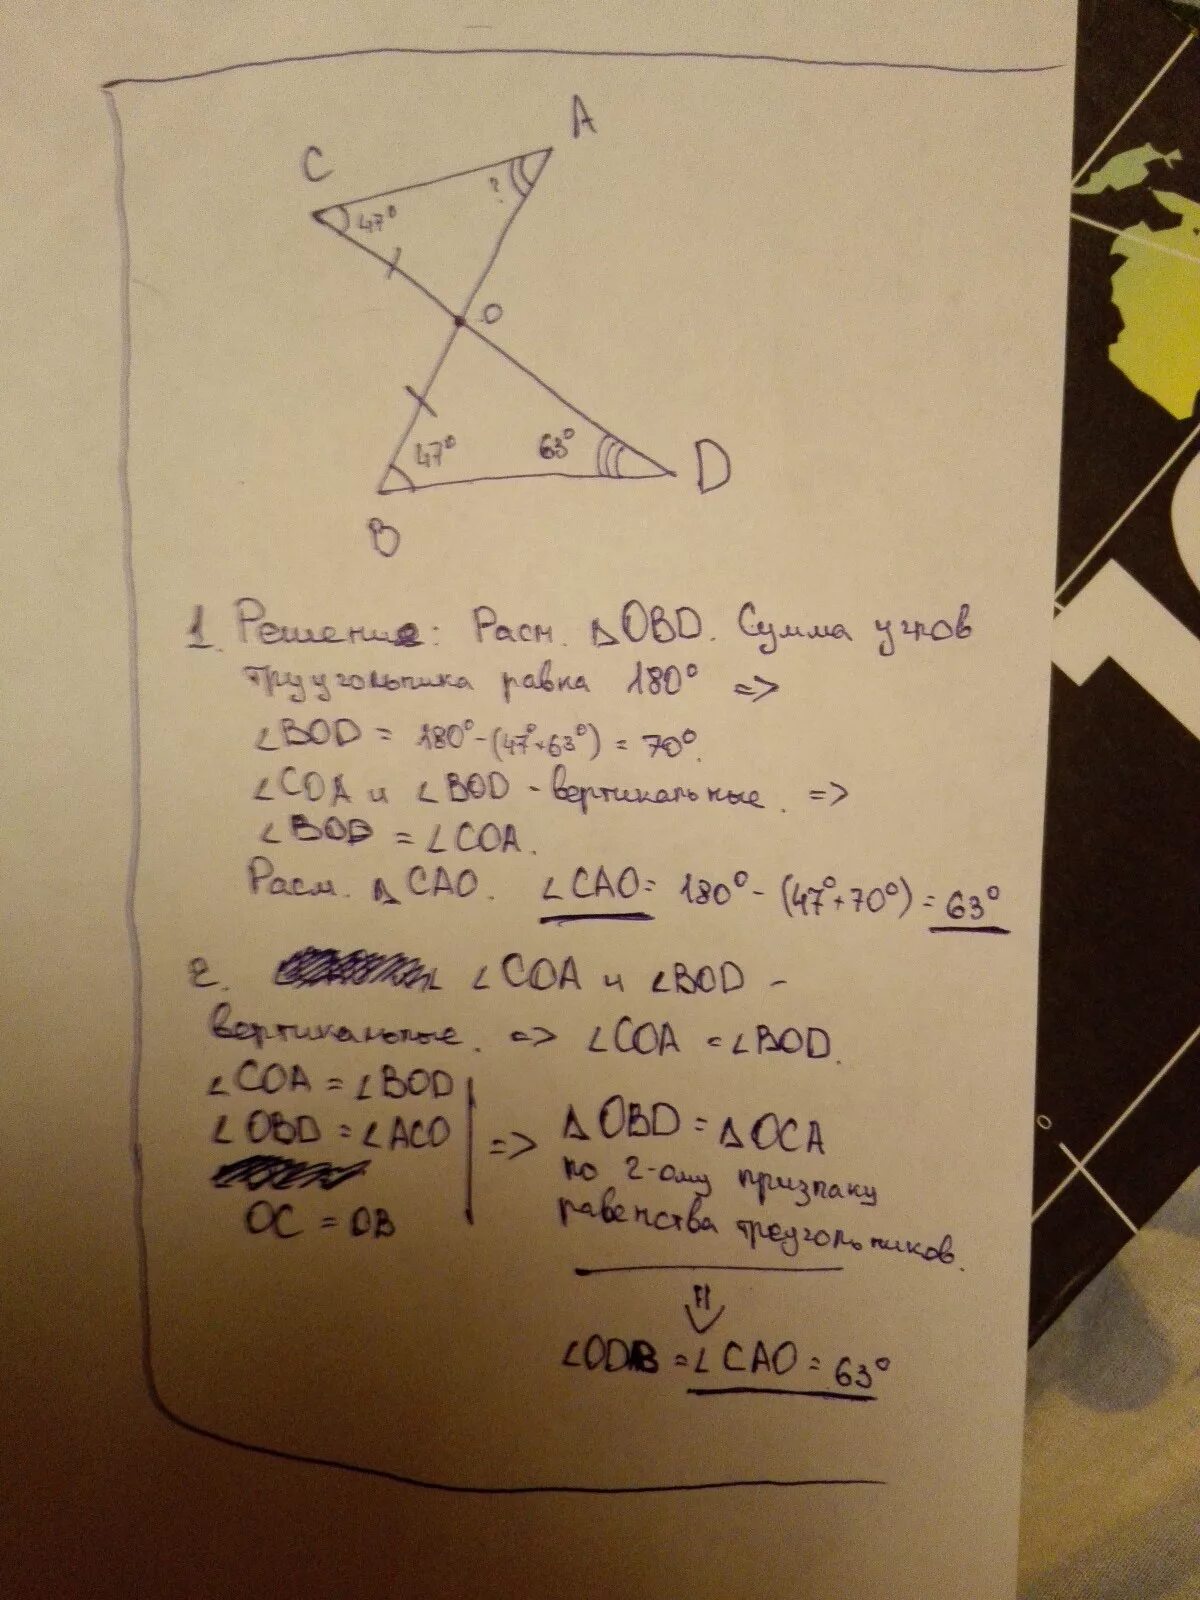 A
C
?
47°
O
47°
63°
D
B
1. Решение: Расм. △OBD. Сумма углов
труугольника равна 180° =>
∠BOD = 180° - (47°+63°) = 70°.
∠COA и ∠BOD - вертикальные. =>
∠BOD = ∠COA.
Расм. △CAO. ∠CAO = 180° - (47°+70°) = 63°
2. ∠COA и ∠BOD -
вертикальные. => ∠COA = ∠BOD.
∠COA = ∠BOD
∠OBD = ∠ACO
OC = OB
=> △OBD = △OCA
по 2-ому признаку
равенства треугольников.
∠ODB = ∠CAO = 63°